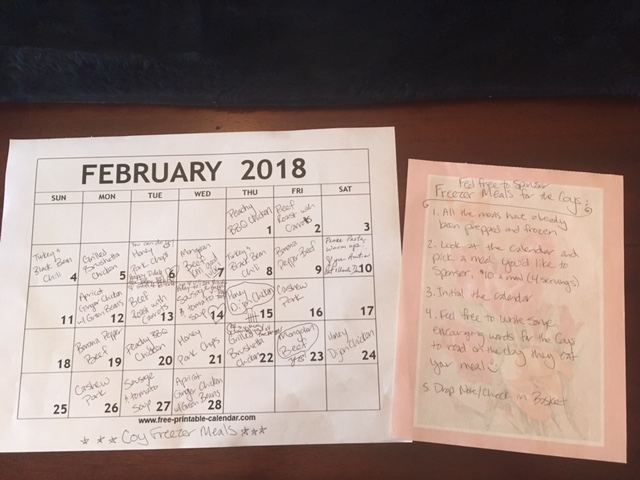 FEBRUARY 2018
SUN MON TUE WED THU FRI SAT
Peachy
BBQ Chicken
1
Beef
Roast with
Carrots
2
3
Turkey &
Black Bean
Chili
4
Grilled
Bruschetta
Chicken
5
Honey
Pork Chops
6
Mongolian
Beef
7
Turkey &
Black Bean
Chili
8
Banana
Pepper Beef
9
10
11
Apricot
Ginger Chicken
& Green Beans
12
Beef
Roast with
Carrots
13
Sausage
& tomato
Soup
14
Honey
Dijon Chicken
15
Cashew
Pork
16
17
18
Banana Pepper
Beef
19
Peachy BBQ
Chicken
20
Honey
Pork Chops
21
Grilled
Bruschetta
Chicken
22
Mongolian
Beef
23
Honey
Dijon Chicken
24
25
Cashew
Pork
26
Sausage
& tomato
Soup
27
Apricot
Ginger Chicken
& Green Beans
28
www.free-printable-calendar.com
*** Coy Freezer Meals ***
Feel free to Sponsor
Freezer Meals for the Coys:
1. All the meals have already
been prepped and frozen
2. Look at the calendar and
pick a meal you'd like to
Sponsor, $10 a meal (4 servings)
3. Initial the calendar
4. Feel free to write some
encouraging words for the Coys
to read on the day they eat
your meal ☺
5. Drop Note/Check in Basket